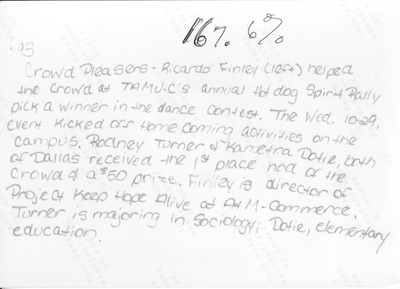 167. 6%
.98
Crowd Pleasers - Ricardo Finley (left) helped
the crowd at TAMU-C's annual Hot dog Spirit Rally
pick a winner in the dance contest. The Wed. 10-29,
event kicked off Homecoming activities on the
campus. Rodney Turner & Kametra Dotie, both
of Dallas received the 1st place nod of the
crowd & a $50 prize. Finley is director of
Project Keep Hope Alive at A&M-Commerce.
Turner is majoring in Sociology; Dotie, elementary
education.